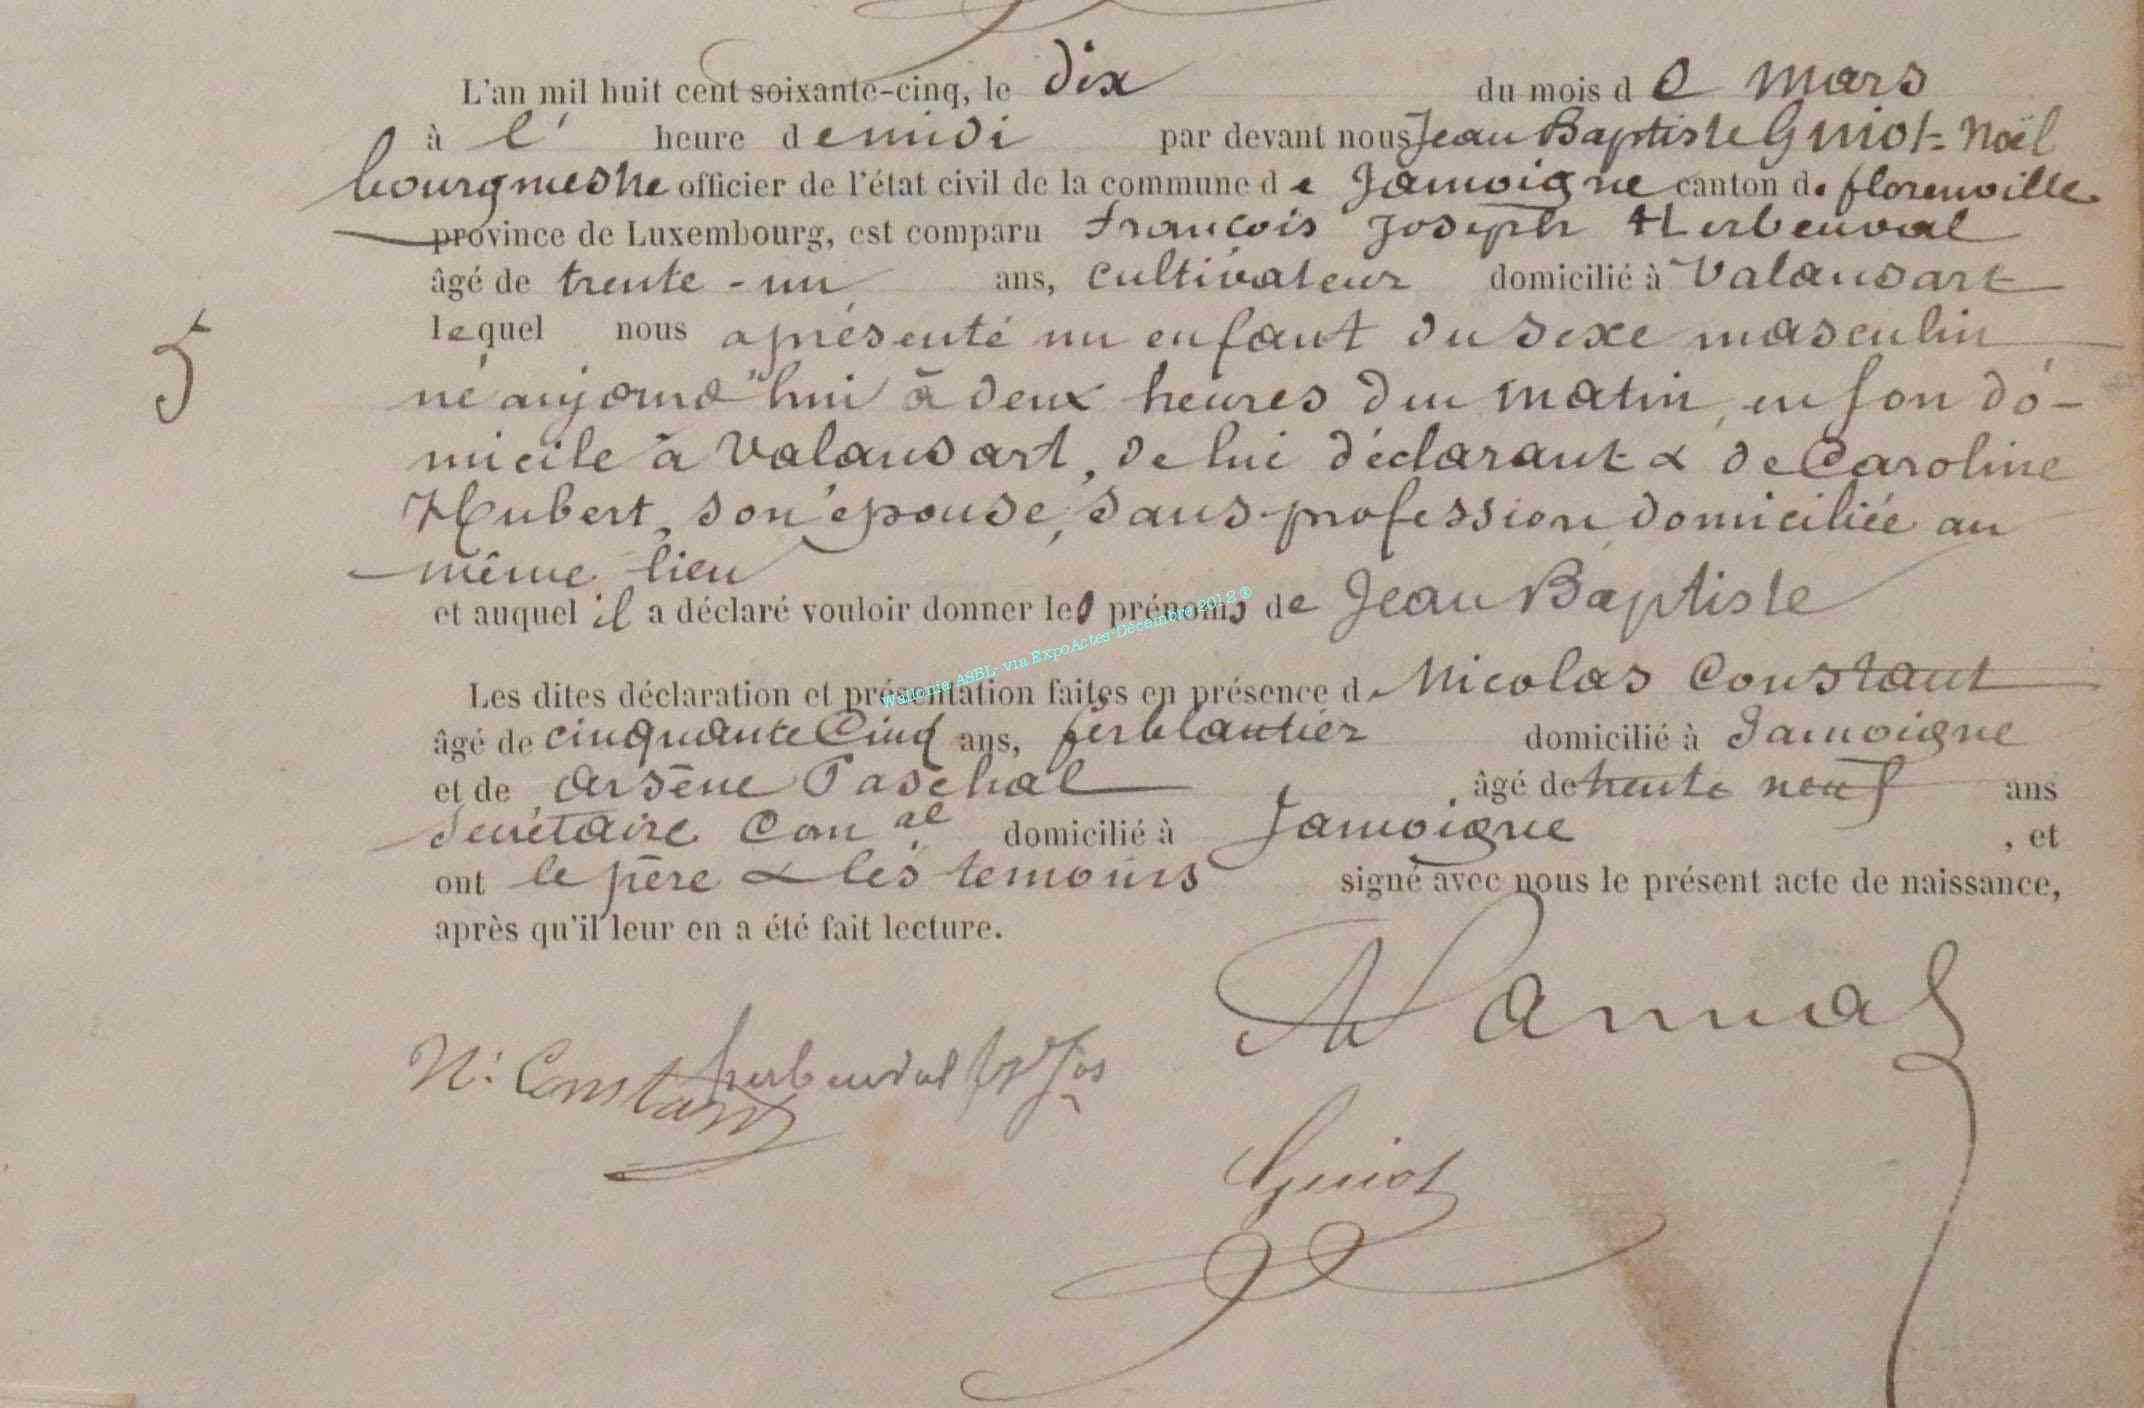 L'an mil huit cent soixante-cinq, le dix du mois de mars
à l' heure de midi par devant nous Jean Baptiste Guiot-Noël
bourgmestre officier de l'état civil de la commune de Jamoigne canton de florenville
province de Luxembourg, est comparu François Joseph Herbeuval
âgé de trente-un ans, cultivateur domicilié à Valansart
lequel nous a présenté un enfant du sexe masculin
5
né aujourd'hui à deux heures du matin, en son do-
micile à Valansart, de lui déclarant & de Caroline
Hubert, son épouse, sans profession, domiciliée au
même lieu
et auquel il a déclaré vouloir donner les prénoms de Jean Baptiste
Wallonia ASBL- via ExpoActes-Décembre 2012 ®
Les dites déclaration et présentation faites en présence de Nicolas Constant
âgé de cinquante Cinq ans, ferblantier domicilié à Jamoigne
et de Arsène Paschal âgé de trente neuf ans
Secrétaire Comal domicilié à Jamoigne, et
ont le père & les temoins signé avec nous le présent acte de naissance,
après qu'il leur en a été fait lecture.
N: Constant herbeuval Jos
Guiot